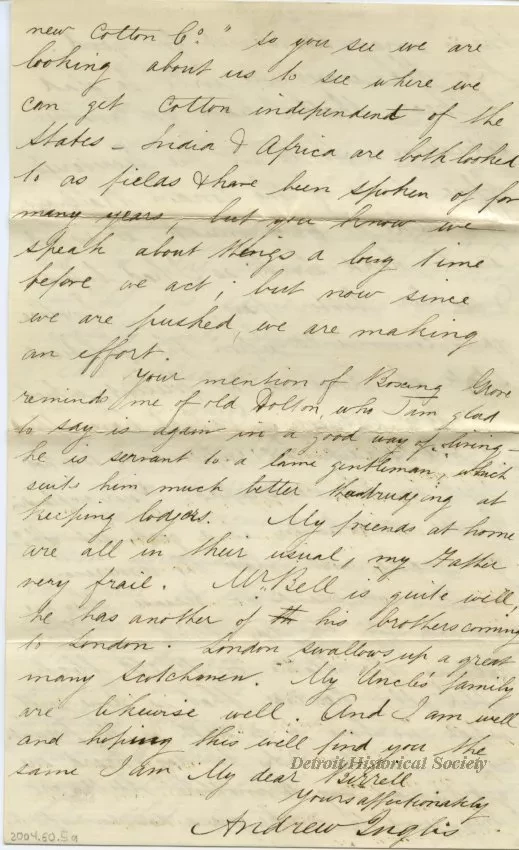 new Cotton Co." so you see we are
looking about us to see where we
can get Cotton independent of the
States - India & Africa are both looked
to as fields & have been spoken of for
many years, but you know we
speak about things a long time
before we act; but now since
we are pushed, we are making
an effort.
Your mention of Boxing Grove
reminds me of old Dolton, who I am glad
to say is again in a good way of living -
he is servant to a lame gentleman, which
suits him much better than trudging at
keeping lodgers. My friends at home
are all in their usual, my Father
very frail. Mr. Bell is quite well,
he has another of th his brothers coming
to London. London swallows up a great
many Scotchmen. My Uncle's family
are likewise well. And I am well
and hoping this will find you the
same I am My dear Birrell
Detroit Historical Society
Yours affectionately
Andrew Inglis
2004.60.5a